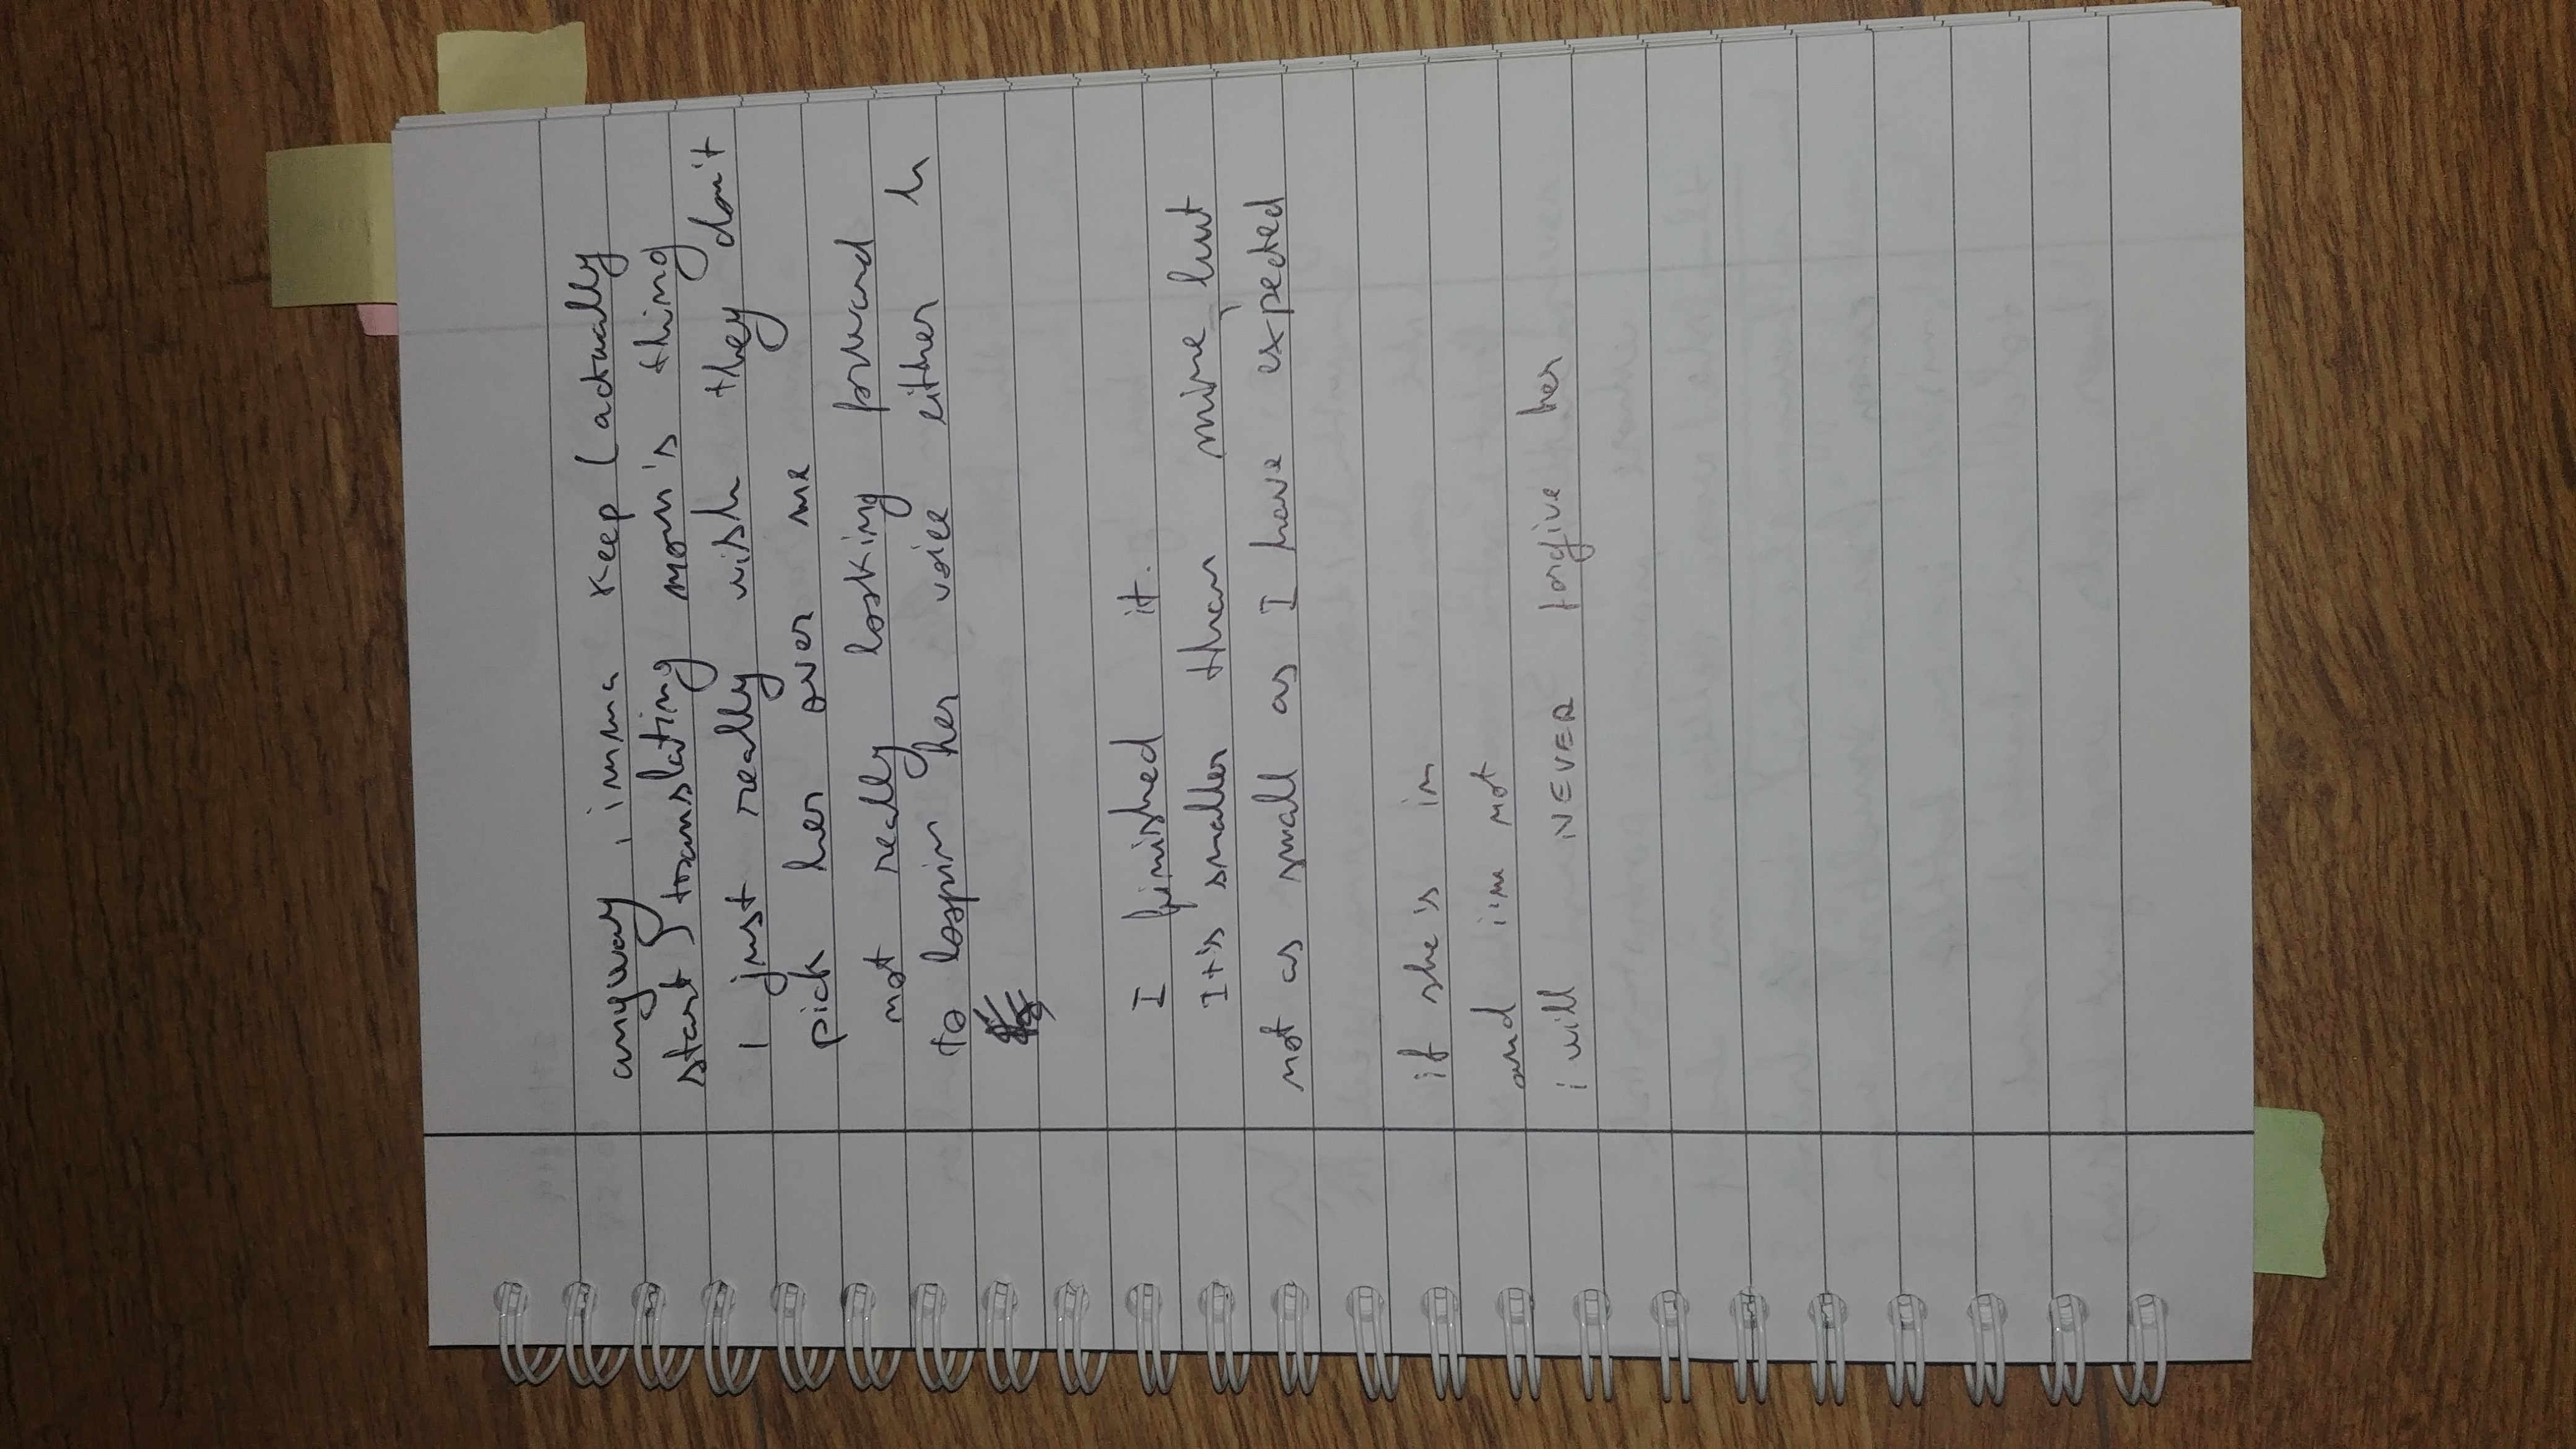 anyway, imma keep (actually
start) translating mom's thing
I just really wish they don't
pick her over me
not really looking forward
to loopin her voice either h
I finished it.
It's smaller than mine, but
not as small as I have expected
if she's in
and i'm not
i will NEVER forgive her